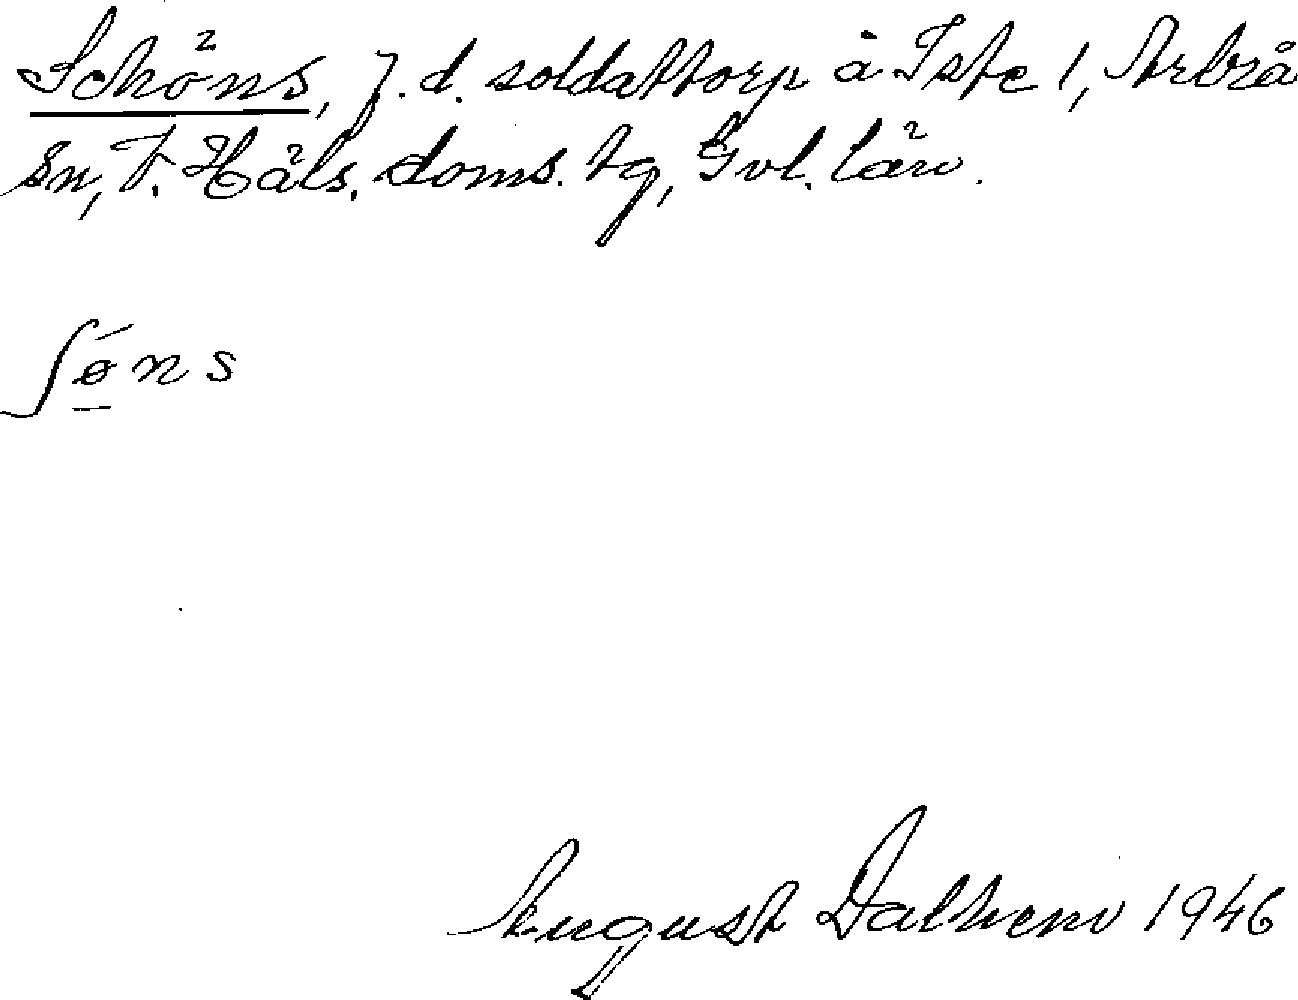 Schöns, f. d. soldattorp å Iste 1, Arbrå
sn, V. Häls. doms. tg, Gvl. län.
ʃøns
August Dalhem 1946